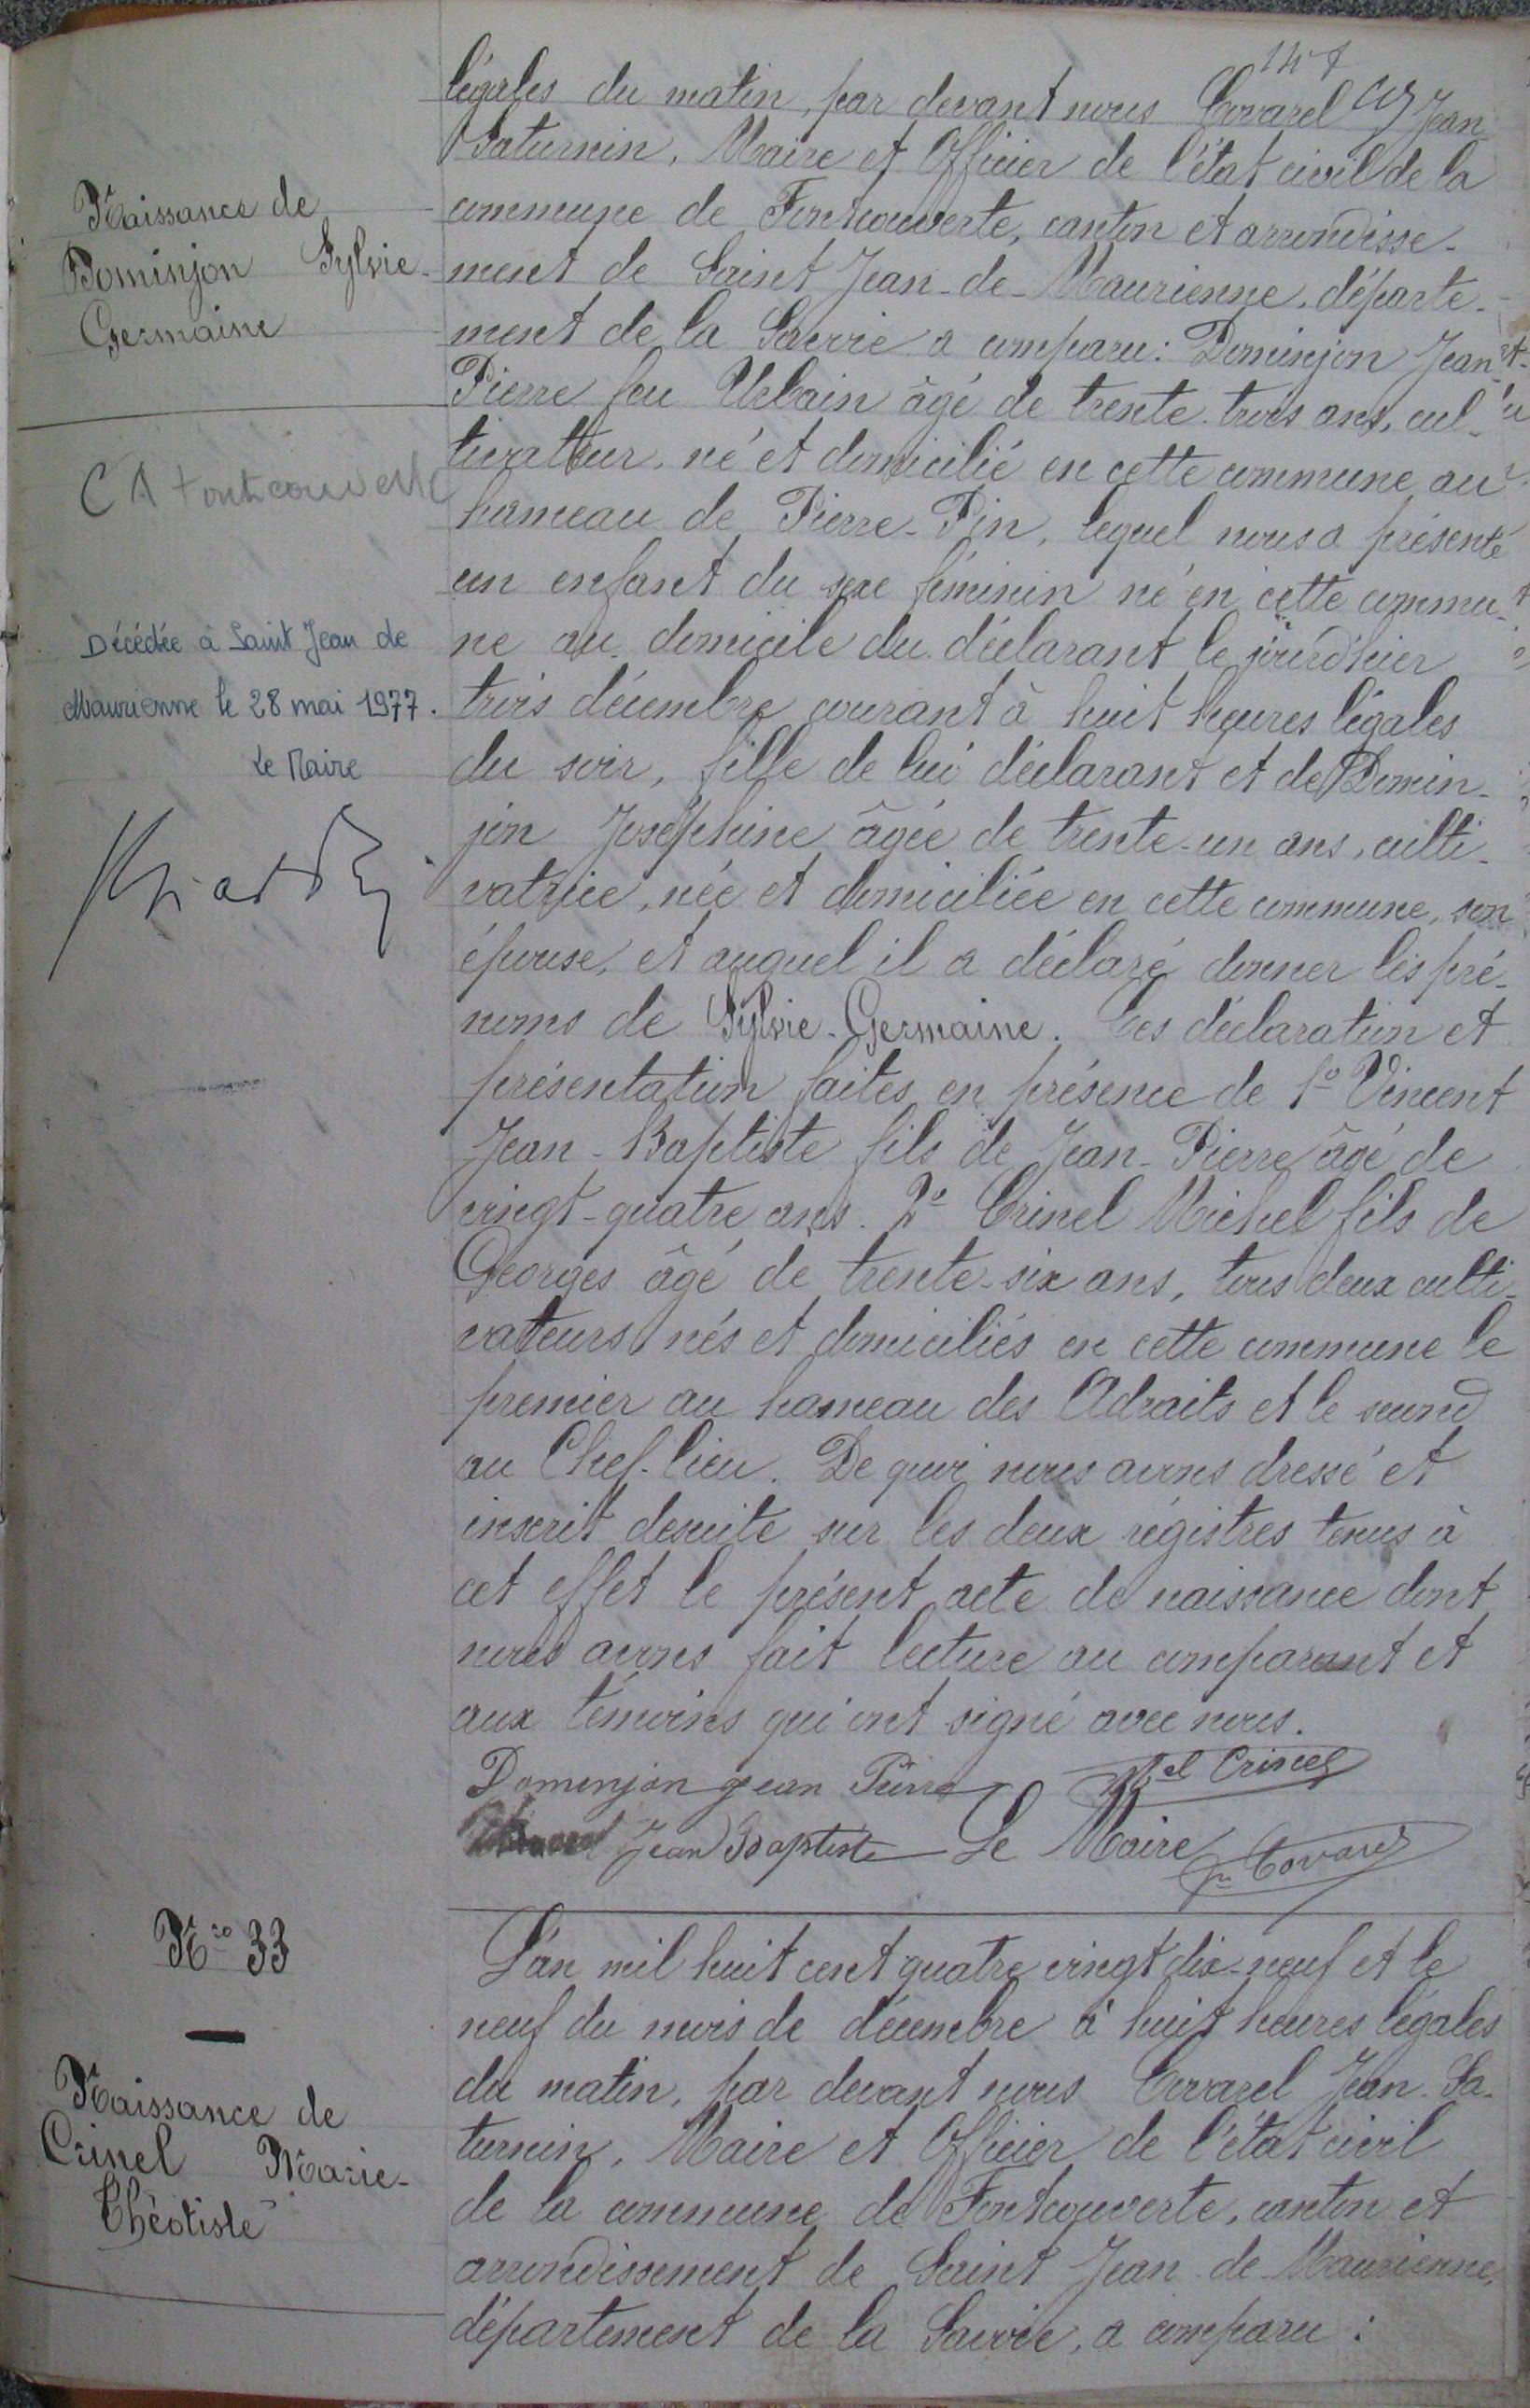 légales du matin, par devant nous Covarel Jean
Saturnin, Maire et Officier de l'état civil de la
commune de Fontcouverte, canton et arrondisse-
ment de Saint Jean-de-Maurienne, départe-
ment de la Savoie a comparu: Dominjon Jean-
Pierre feu Urbain âgé de trente-trois ans, cul-
tivateur, né et domicilié en cette commune au
hameau de Pierre-Pin, lequel nous a présenté
un enfant du sexe féminin né en cette commu-
ne au domicile du déclarant le jourd'hier
trois décembre courant à huit heures légales
du soir, fille de lui déclarant et de Domin-
jon Joséphine âgée de trente-un ans, culti-
vatrice, née et domiciliée en cette commune, son
épouse, et auquel il a déclaré donner les pré-
noms de Sylvie-Germaine. Ces déclaration et
présentation faites en présence de 1º Vincent
Jean-Baptiste fils de Jean-Pierre âgé de
vingt-quatre ans. 2º Crinel Michel fils de
Georges âgé de trente-six ans, tous deux culti-
vateurs nés et domiciliés en cette commune le
premier au hameau des Adraits et le second
au Chef-lieu. De quoi nous avons dressé et
inscrit desuite sur les deux régistres tenus à
cet effet le présent acte de naissance dont
nous avons fait lecture au comparant et
aux témoins qui ont signé avec nous.
Dominjon jean Pierre Mel Crinel
Jean Baptiste Le Maire Covarel
Naissance de
Dominjon Sylvie-
Germaine
CA Fontcouverte
Décédée à Saint Jean de
Maurienne le 28 mai 1977.
Le Maire
Nº 33
Naissance de
Crinel Marie-
Théotiste
L'an mil huit cent quatre vingt dix-neuf et le
neuf du mois de décembre à huit heures légales
du matin, par devant nous Covarel Jean-Sa-
turnin, Maire et Officier de l'état civil
de la commune de Fontcouverte, canton et
arrondissement de Saint Jean-de-Maurienne,
département de la Savoie, a comparu: